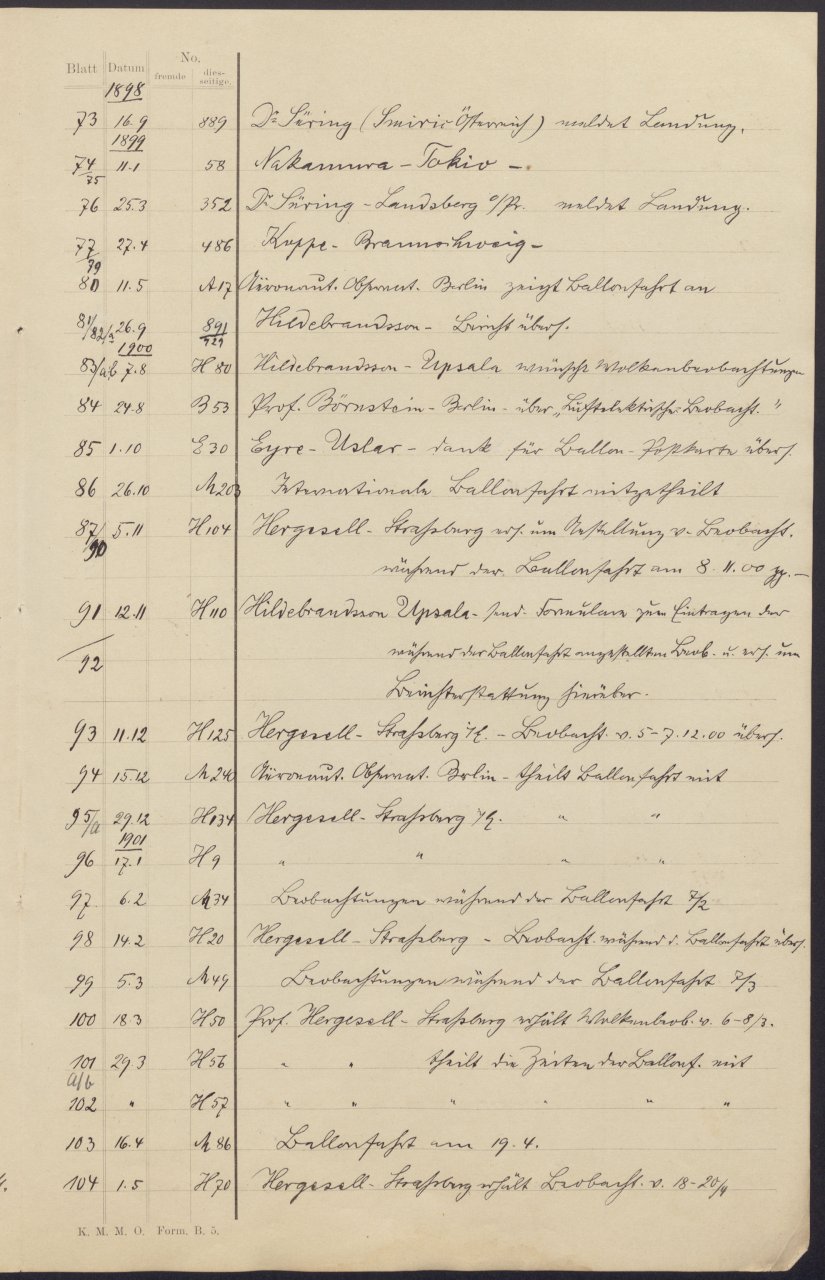 Blatt Datum No.
fremde dies-seitige.
1898
73 16.9 889 Dr Süring (Smiric Österreich) meldet Landung.
1899
74/75 11.1 58 Nakamura – Tokio –
76 25.3 352 Dr Süring – Landsberg a/W. meldet Landung.
77/79 27.4 486 Koppe – Braunschweig –
80 11.5 A17 Aëronaut. Observat. Berlin zeigt Ballonfahrt an
81/82/a 26.9 891/929 Hildebrandsson – Bericht übers.
1900
83/a,b 7.8 H80 Hildebrandsson – Upsala wünscht Wolkenbeobachtungen
84 24.8 B53 Prof. Börnstein – Berlin – über „Luftelektrische Beobacht."
85 1.10 E30 Eyre – Uslar – dank für Ballon-Postkarte übers.
86 26.10 M203 Internationale Ballonfahrt mitgetheilt
87/90 5.11 H104 Hergesell – Straßburg ers. um Anstellung v. Beobacht.
während der Ballonfahrt am 8.11.00 pp. –
91 12.11 H110 Hildebrandsson Upsala – send. Formulare zum Eintragen der
92 während der Ballonfahrt angestellten Beob. u. ers. um
Berichterstattung hierüber.
93 11.12 H125 Hergesell – Straßburg i/E. – Beobacht. v. 5–7.12.00 übers.
94 15.12 M240 Aëronaut. Observat. Berlin – theilt Ballonfahrt mit
95/a 29.12 H134 Hergesell – Straßburg i/E. " "
1901
96 17.1 H9 " " " "
97 6.2 M34 Beobachtungen während der Ballonfahrt 7/2
98 14.2 H20 Hergesell – Straßburg – Beobacht. während d. Ballonfahrt übers.
99 5.3 M49 Beobachtungen während der Ballonfahrt 7/3
100 18 3 H50 Prof. Hergesell – Straßburg erhält Wolkenbeob. v. 6–8/3.
101 29.3 H56 " " theilt die Zeiten der Ballonf. mit
a/b
102 " H57 " " " " " "
103 16.4 M86 Ballonfahrt am 19.4.
104 1.5 H70 Hergesell – Straßburg erhält Beobacht. v. 18–20/4
K. M. M. O. Form. B. 5.